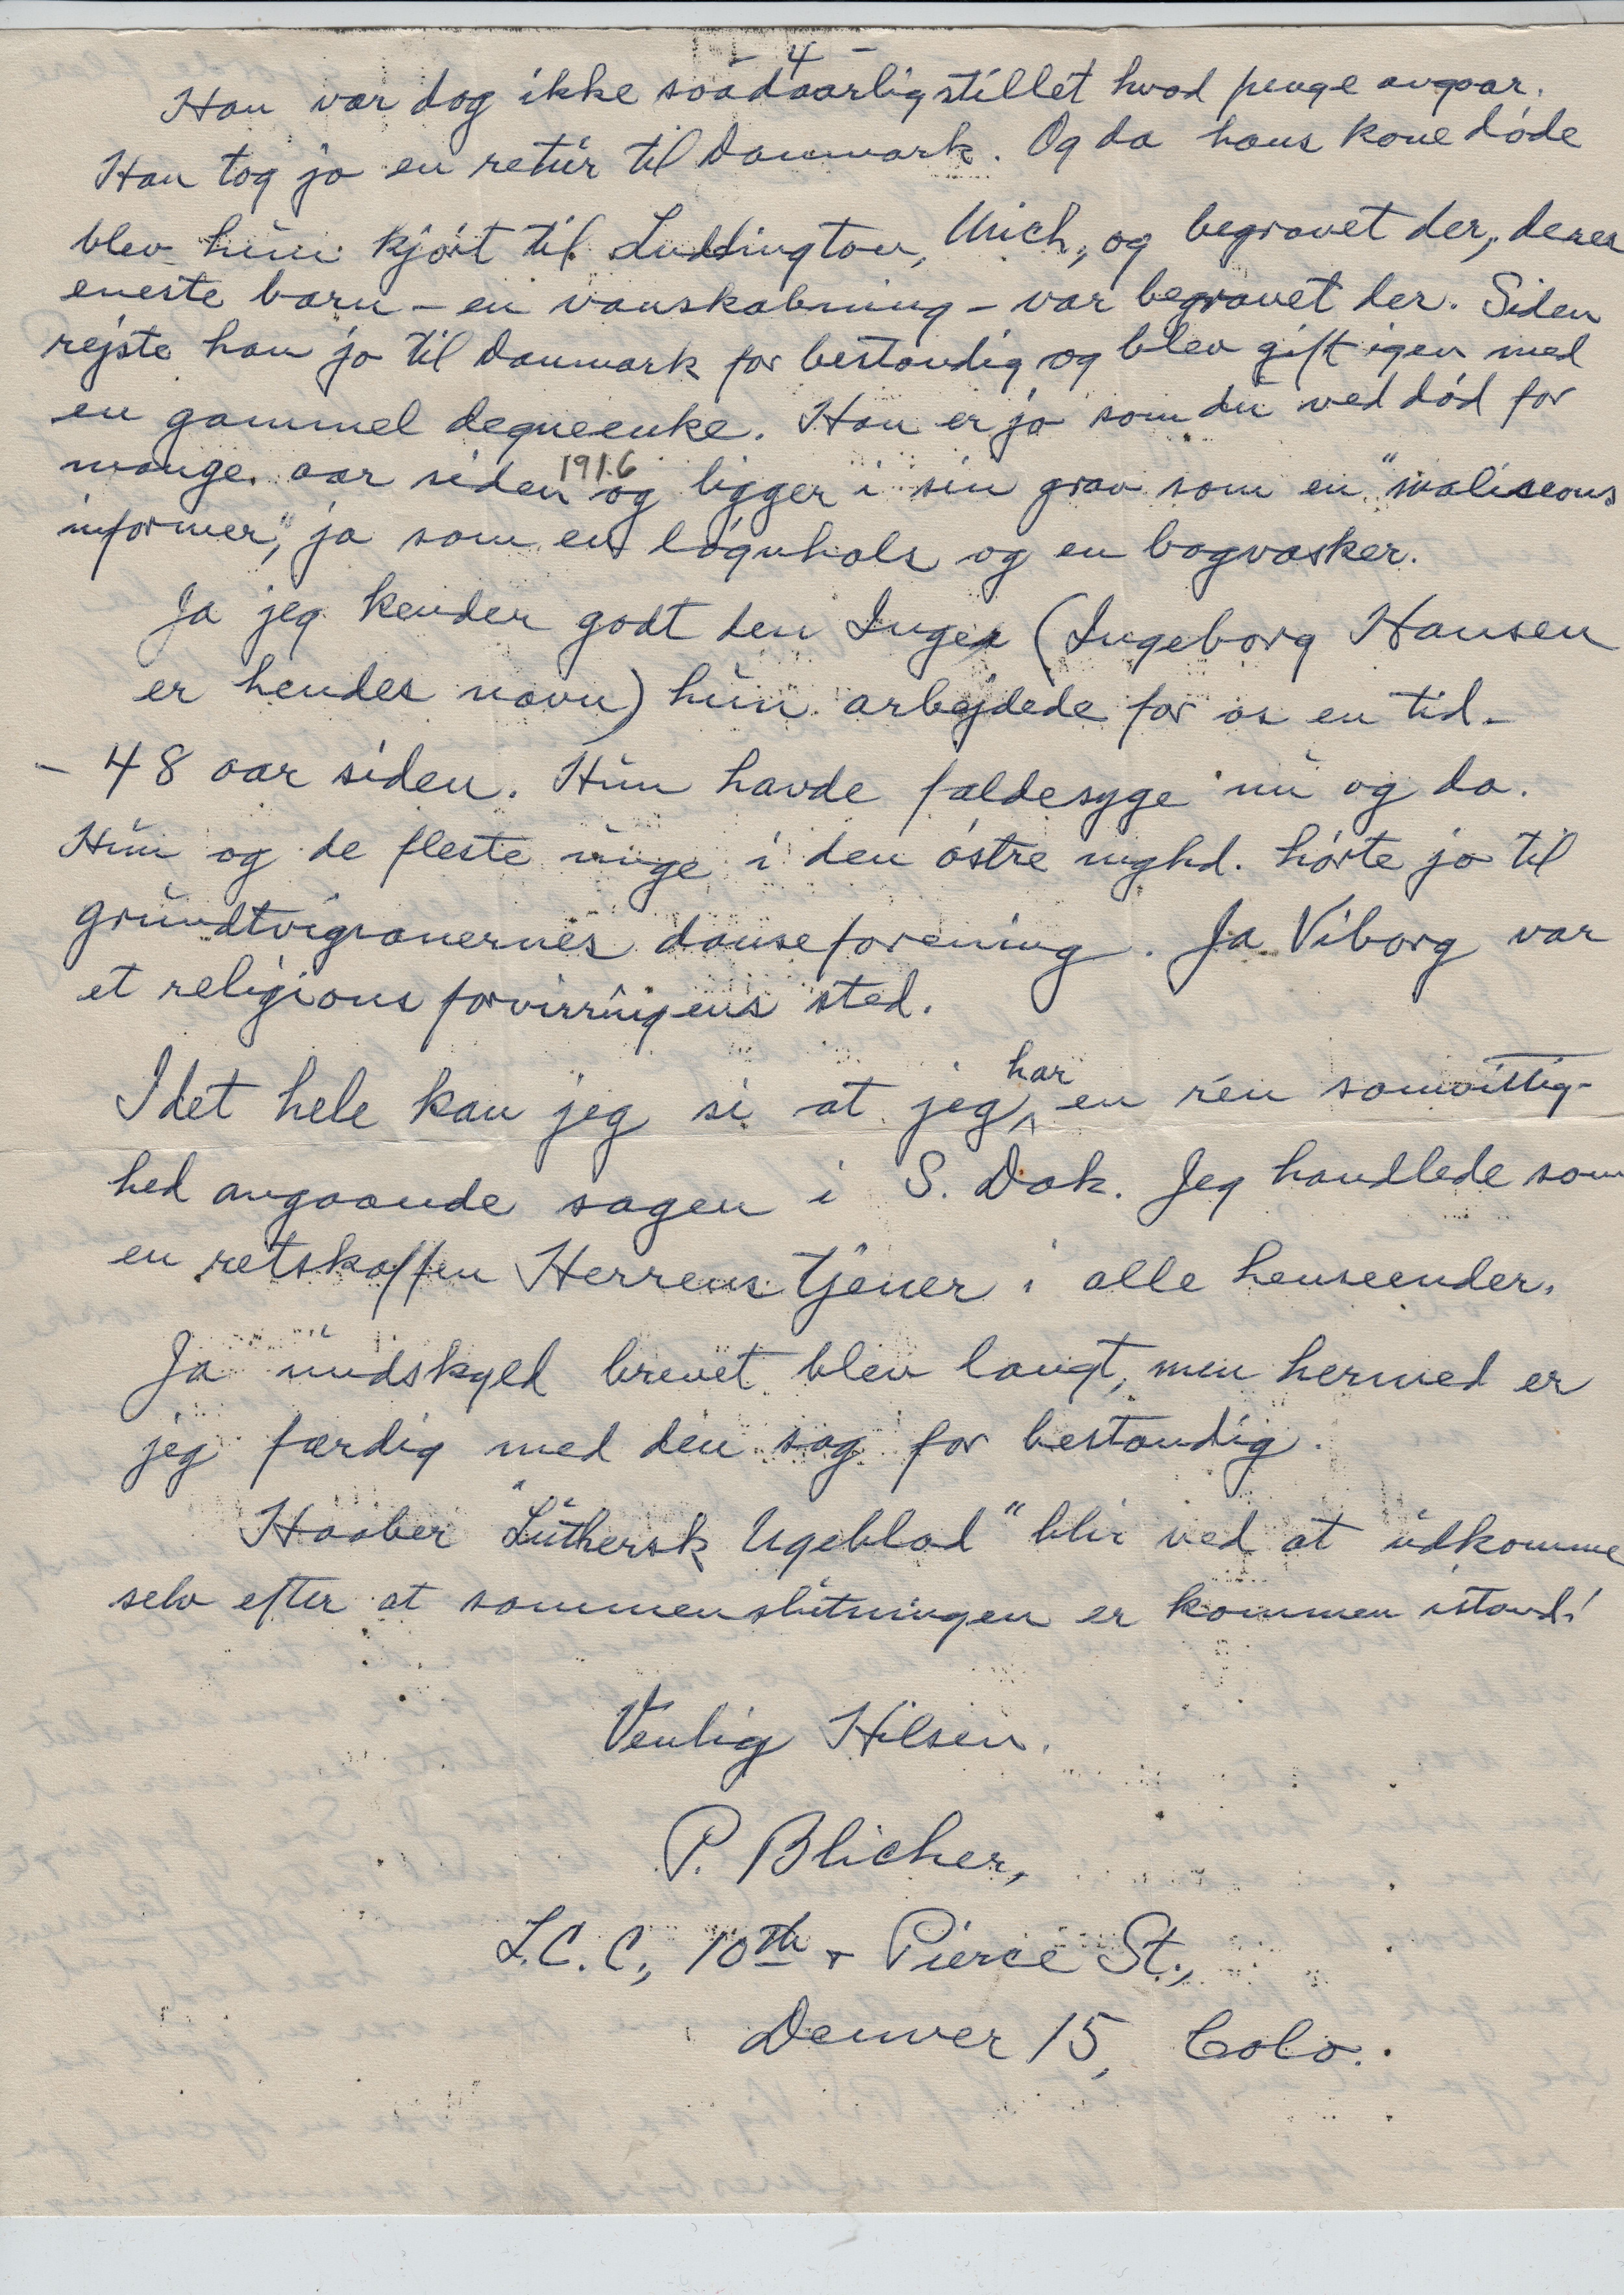 - 4 -
Han var dog ikke saadaarligstillet hvad penge angaar.
Han tog jo en retur til Danmark. Og da hans kone døde
blev hun kjørt til Luddington, Mich., og begravet der, deres
eneste barn - en vanskabning - var begravet der. Siden
rejste han jo til Danmark for bestandig og blev gift igen med
en gammel degneenke. Han er jo som du ved død for
mange aar siden 1916 og ligger i sin grav som en "maliseous
informer," ja som en løgnhals og en bagvasker.
Ja jeg kender godt den Inger (Ingeborg Hansen
er hendes navn) hun arbejdede for os en tid -
- 48 aar siden. Hun havde faldesyge nu og da.
Hun og de fleste unge i den østre nyhd. hørte jo til
grundtvigianernes danseforening. Ja Viborg var
et religions forvirringens sted.
I det hele kan jeg si at jeg har en ren samvittig-
hed angaaende sagen i S. Dak. Jeg handlede som
en retskaffen Herrens tjener i alle henseender.
Ja undskyld brevet blev langt, men hermed er
jeg færdig med den sag for bestandig.
Haaber "Luthersk Ugeblad" blir ved at udkomme
selv efter at sammenslutningen er kommen istand!
Venlig Hilsen.
P. Blicher,
L.C.C., 10th + Pierce St.,
Denver 15, Colo.